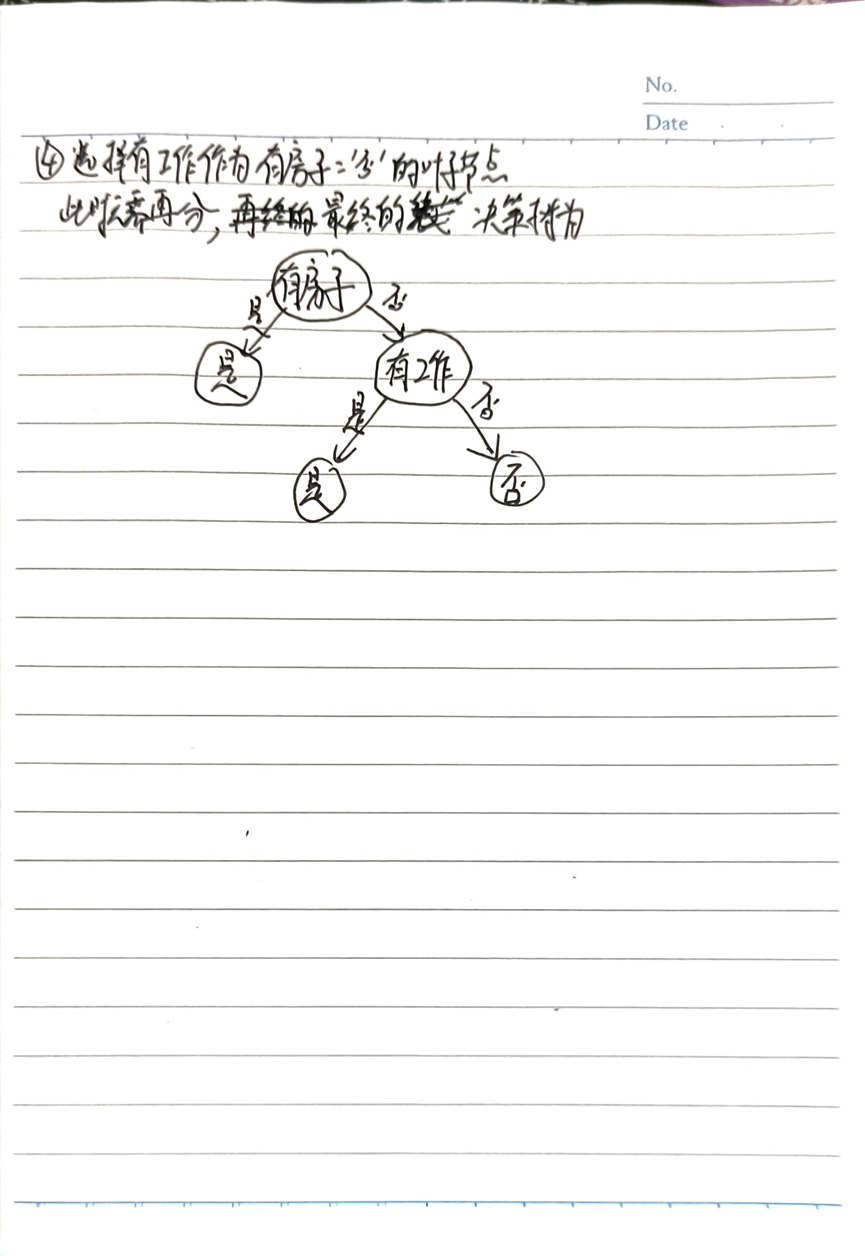 No.
Date
④选择有工作作为 有房子='否'的叶子节点
此时无需再分, 最终的 决策树为
有房子
是 否
是 有工作
是 否
是 否